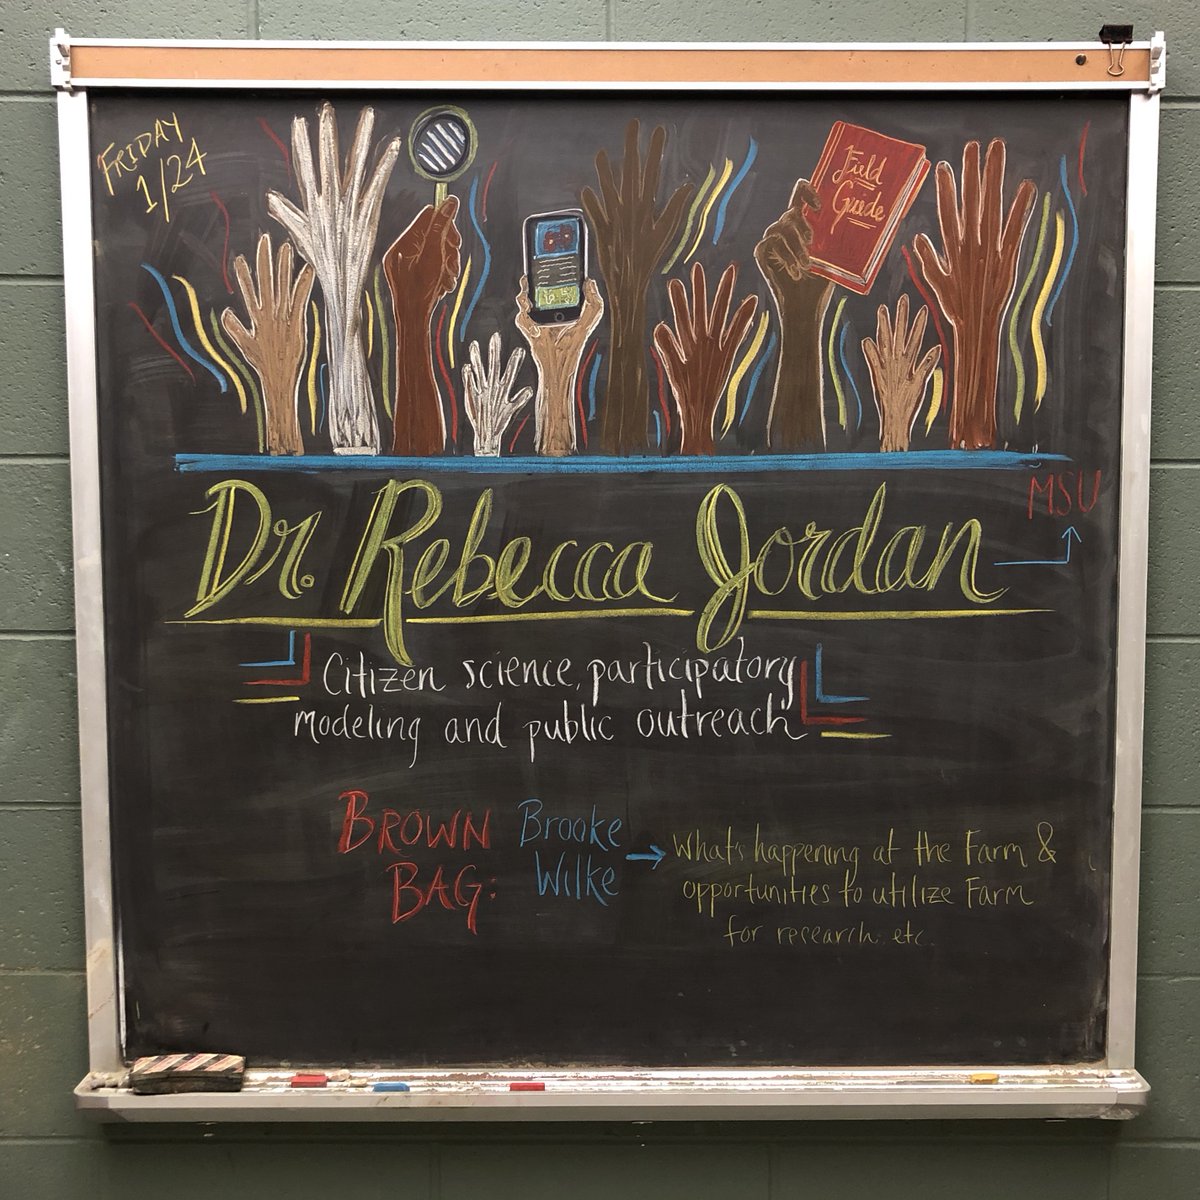 FRIDAY
1/24
Field
Guide
MSU
Dr. Rebecca Jordan
Citizen science, participatory
modeling and public outreach
BROWN
BAG:
Brooke
Wilke
What's happening at the Farm &
opportunities to utilize Farm
for research, etc.